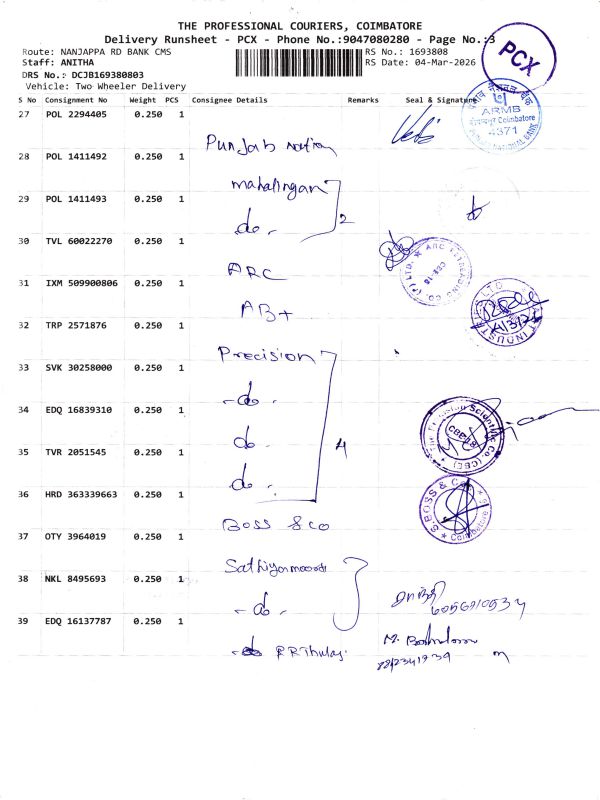 THE PROFESSIONAL COURIERS, COIMBATORE
Delivery Runsheet - PCX - Phone No.:9047080280 - Page No.:3
Route: NANJAPPA RD BANK CMS
RS No.: 1693808
Staff: ANITHA
RS Date: 04-Mar-2026
DRS No.: DCJB169380803
Vehicle: Two Wheeler Delivery
PCX
S No Consignment No Weight PCS Consignee Details Remarks Seal & Signature
27 POL 2294405 0.250 1
Punjab Nation
ARMB
Coimbatore
4371
28 POL 1411492 0.250 1
mahalingam
29 POL 1411493 0.250 1
-do- 2
30 TVL 60022270 0.250 1
ARC
31 IXM 509900806 0.250 1
AB+
32 TRP 2571876 0.250 1
Precision
33 SVK 30258000 0.250 1
-do-
34 EDQ 16839310 0.250 1
do. 4
35 TVR 2051545 0.250 1
do.
36 HRD 363339663 0.250 1
Boss & co
S.BOSS & CO
Coimbatore
37 OTY 3964019 0.250 1
38 NKL 8495693 0.250 1
-do-
39 EDQ 16137787 0.250 1